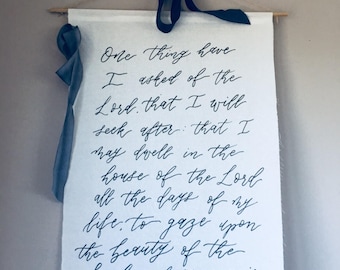 One thing have
I asked of the
Lord, that I will
seek after: that I
may dwell in the
house of the Lord
all the days of my
life, to gaze upon
the beauty of the